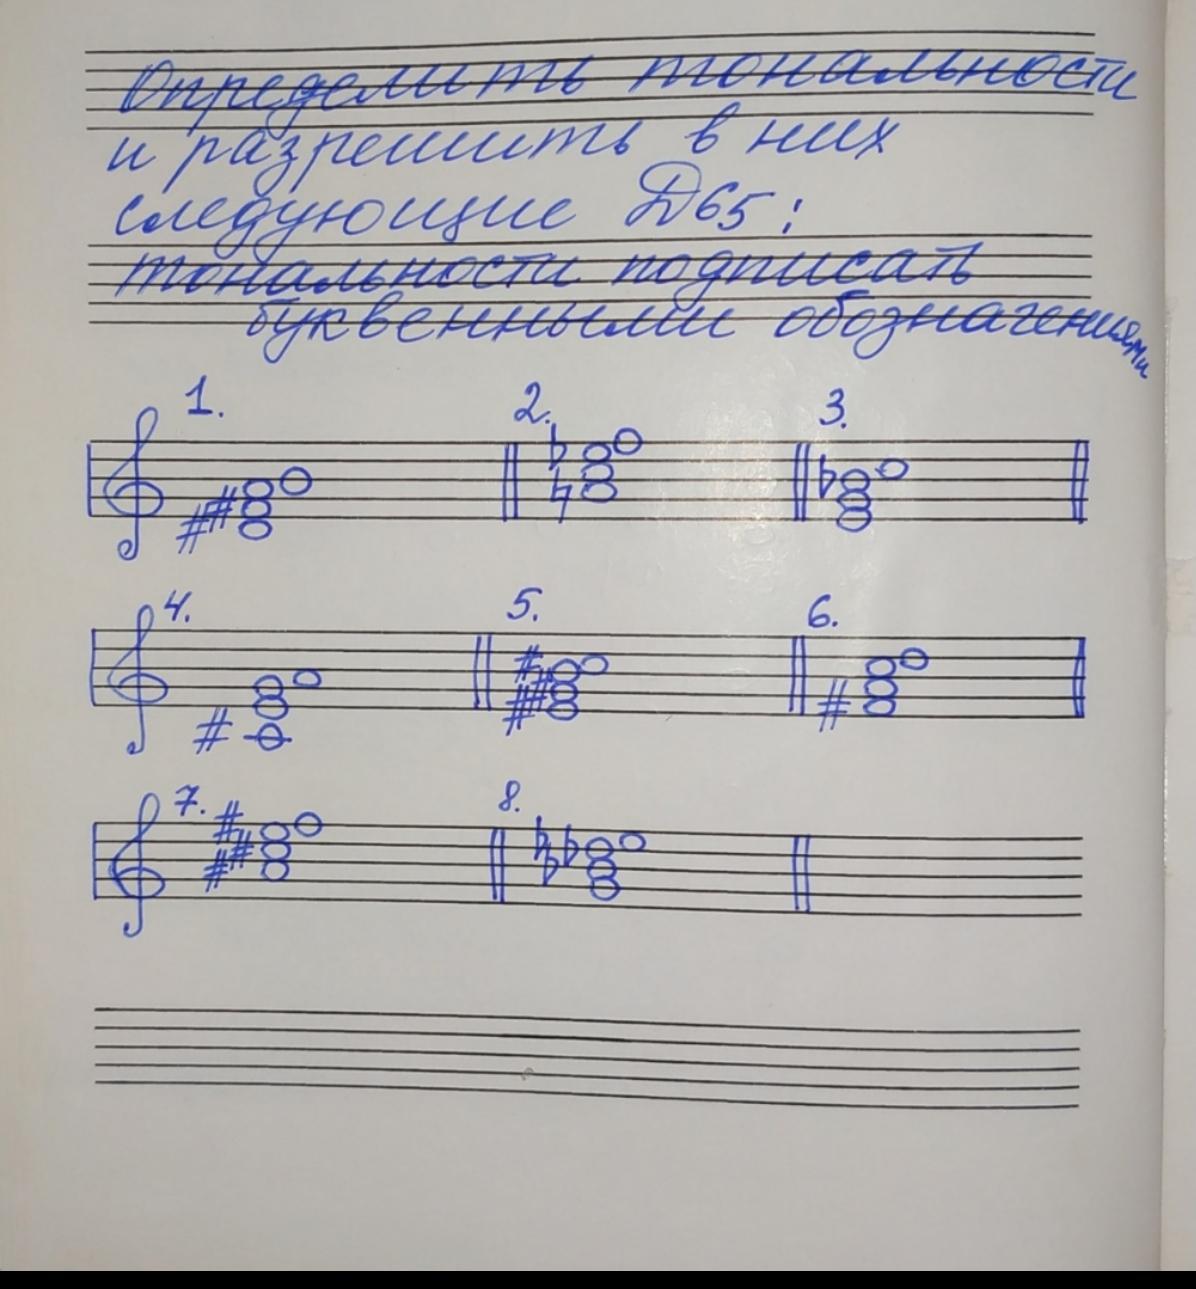 Определить тональности
и разрешить в них
следующие Д65:
тональности подписать
буквенными обозначениями
1. 2. 3.
4. 5. 6.
7. 8.